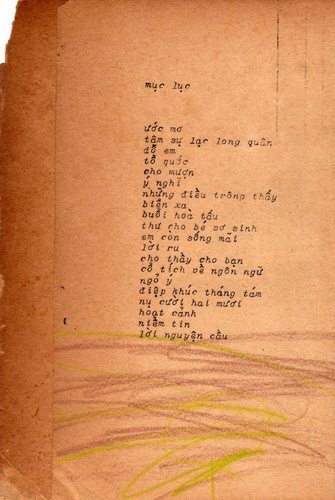 mục lục
ước mơ
tâm sự lạc long quân
đố em
tổ quốc
cho mượn
ý nghĩ
những điều trông thấy
biển xa
buổi hoà tấu
thư cho bé sơ sinh
em còn sống mãi
lời ru
cho thầy cho bạn
cổ tích về ngôn ngữ
ngỏ ý
điệp khúc tháng tám
nụ cười hai mươi
hoạt cảnh
niềm tin
lời nguyện cầu